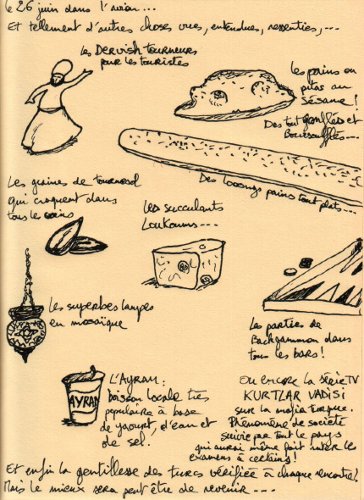 le 26 juin dans l'avion...
Et tellement d'autres choses vues, entendues, ressenties,...
Les Dervish tourneurs
pour les touristes
Les pains ou
pitas au
Sésame!
Des tout gonflés et
Boursouflés...
Des loooongs pains tout plats...
Les graines de tournesol
qui croquent dans
tous les coins
Les succulents
Loukoums...
Les superbes lampes
en mosaïque
Les parties de
Backgammon dans
tous les bars!
AYRAN
L'AYRAN:
Boisson locale très
populaire à base
de yaourt, d'eau et
de sel.
Ou encore la série TV
KURTLAR VADISI
sur la mafia turque.
Phénomène de société
suivie par tout le pays
qui aurait même fait rater les
examens à certains!
Et enfin la gentillesse des turcs vérifiée à chaque rencontre!
Mais le mieux sera peut être de revenir...